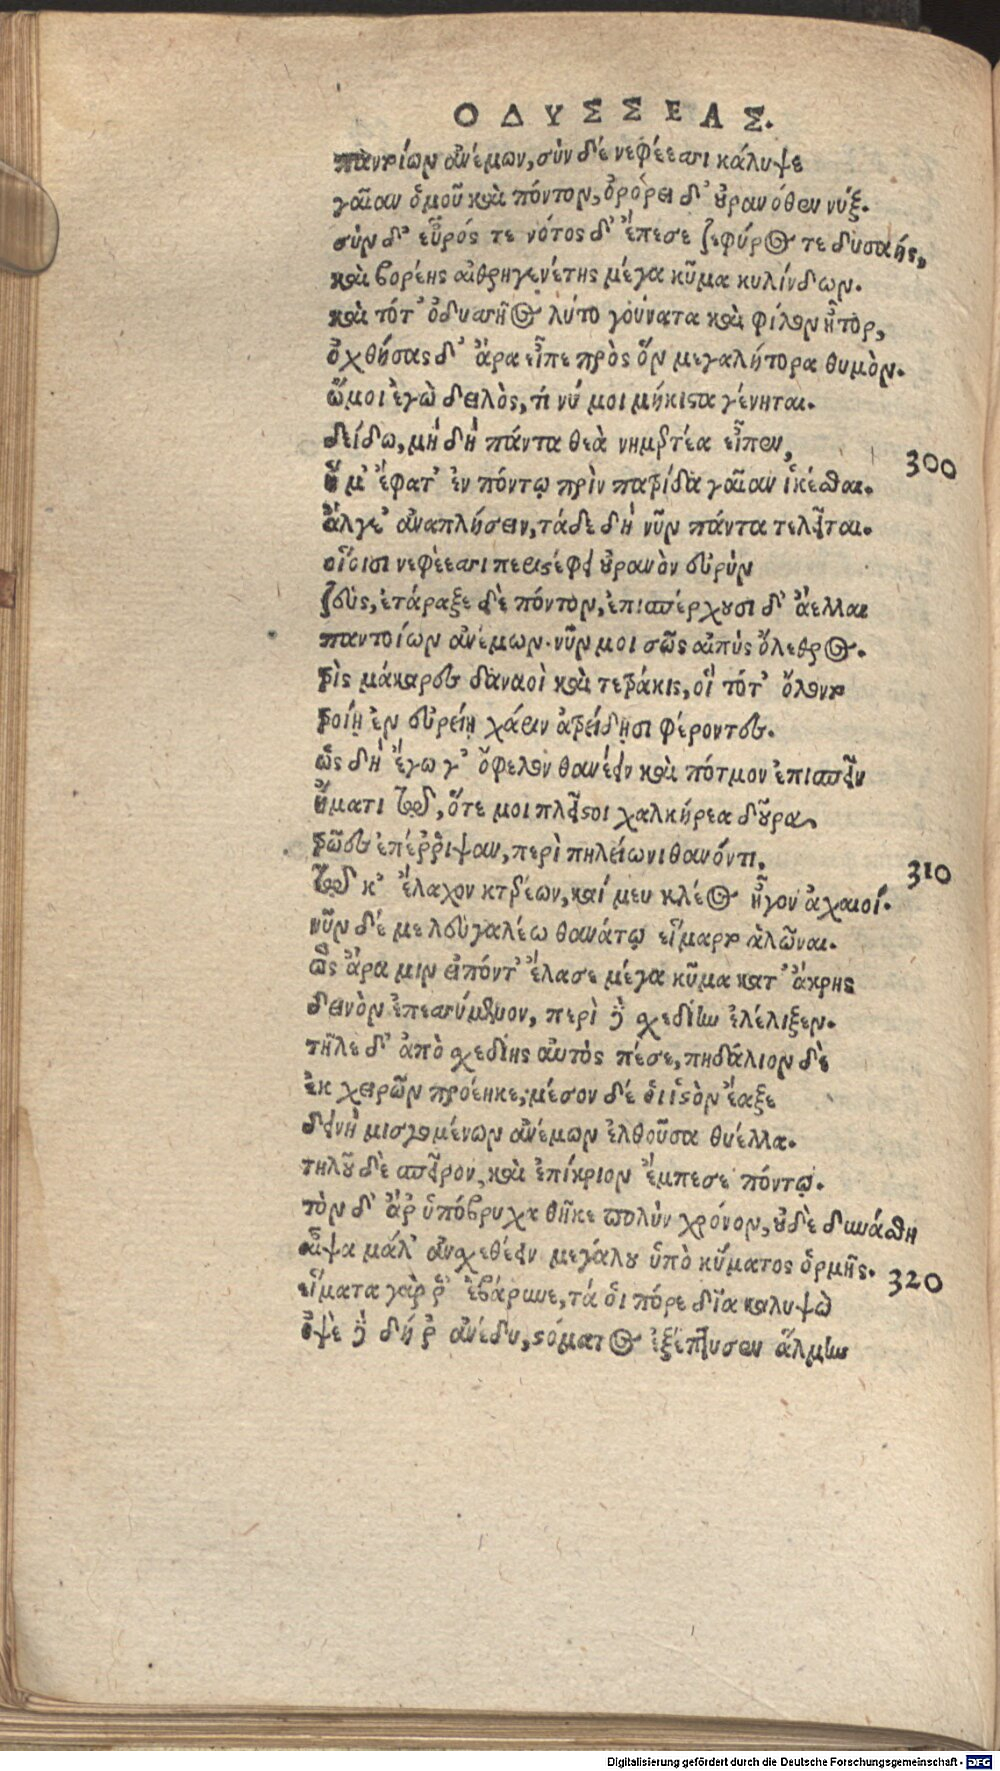 ΟΔΥΣΣΕΑΣ.
παντοίων ἀνέμων, σὺν δέ νεφέεσσι κάλυψε
γαῖαν ὁμοῦ καὶ πόντον, ὀρώρει δ' οὐρανόθεν νύξ.
σὺν δ' εὖρός τε νότος δ' ἔπεσε ζεφύρος τε δυσαής,
καὶ βορέης αἰθρηγενέτης μέγα κῦμα κυλίνδων.
καὶ τότ' ὀδυσσῆος λύτο γούνατα καὶ φίλον ἦτορ,
ὀχθήσας δ' ἄρα εἶπε πρὸς ὃν μεγαλήτορα θυμὸν.
ὤμοι ἐγὼ δειλὸς, τί νύ μοι μήκιστα γένηται.
δείδω, μὴ δὴ πάντα θεὰ νημερτέα εἶπεν, 300
ἥ μ' ἔφατ' ἐν πόντῳ πρὶν πατρίδα γαῖαν ἱκέσθαι.
ἄλγε' ἀναπλήσειν, τάδε δὴ νῦν πάντα τελεῖται.
οἵοισι νεφέεσσι περιστέφει οὐρανὸν εὐρὺν
ζεὺς, ἐτάραξε δὲ πόντον, ἐπισπέρχουσι δ' ἄελλαι
παντοίων ἀνέμων. νῦν μοι σῶς αἰπὺς ὄλεθρος.
τρὶς μάκαρες δαναοὶ καὶ τετράκις, οἳ τότ' ὄλοντο
τροίῃ ἐν εὐρείῃ χάριν ἀτρείδῃσι φέροντες.
ὡς δὴ ἔγω γ' ὄφελον θανέειν καὶ πότμον ἐπισπεῖν
ἤματι τῷ, ὅτε μοι πλεῖστοι χαλκήρεα δοῦρα,
τρῶες ἐπέῤῥιψαν, περὶ πηλείωνι θανόντι, 310
τῷ κ' ἔλαχον κτερέων, καί μευ κλέος ἦγον ἀχαιοί.
νῦν δέ με λευγαλέω θανάτῳ εἵμαρτο ἁλῶναι.
ὣς ἄρα μιν εἰπόντ' ἔλασε μέγα κῦμα κατ' ἄκρης
δεινὸν ἐπεσσύμενον, περὶ δὲ σχεδίην ἐλέλιξεν.
τῆλε δ' ἀπὸ σχεδίης αὐτὸς πέσε, πηδάλιον δὲ
ἐκ χειρῶν προέηκε, μέσον δέ οἱ ἱστὸν ἔαξε
δεινὴ μισγομένων ἀνέμων ἐλθοῦσα θυέλλα.
τηλοῦ δὲ σπεῖρον, καὶ ἐπίκριον ἔμπεσε πόντῳ.
τὸν δ' ἄρ ὑπόβρυχα θῆκε πολὺν χρόνον, οὐδὲ δυνάσθη
αἶψα μάλ' ἀνσχεθέειν μεγάλου ὑπὸ κύματος ὁρμῆς. 320
εἵματα γάρ ῥ' ἐβάρωνε, τά οἱ πόρε δῖα καλυψὼ
ὀψὲ δὲ δή ῥ ἀνέδυ, στόματος ἐξέπτυσεν ἅλμην
Digitalisierung gefördert durch die Deutsche Forschungsgemeinschaft - DFG